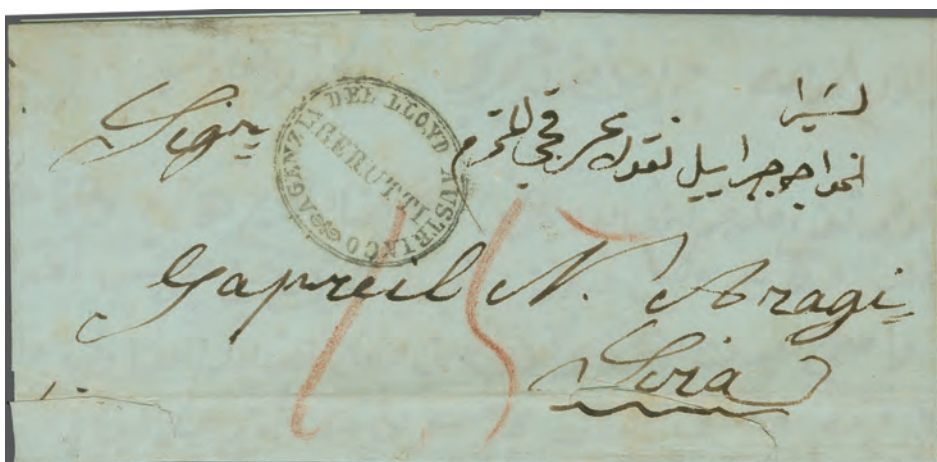 Sigr
AGENZIA DEL LLOYD AUSTRIACO
BERUTTI
لسيرا
الخواجه جبراييل نقولا عرقجي المحترم
15
Gapreil N. Aragi
Sira